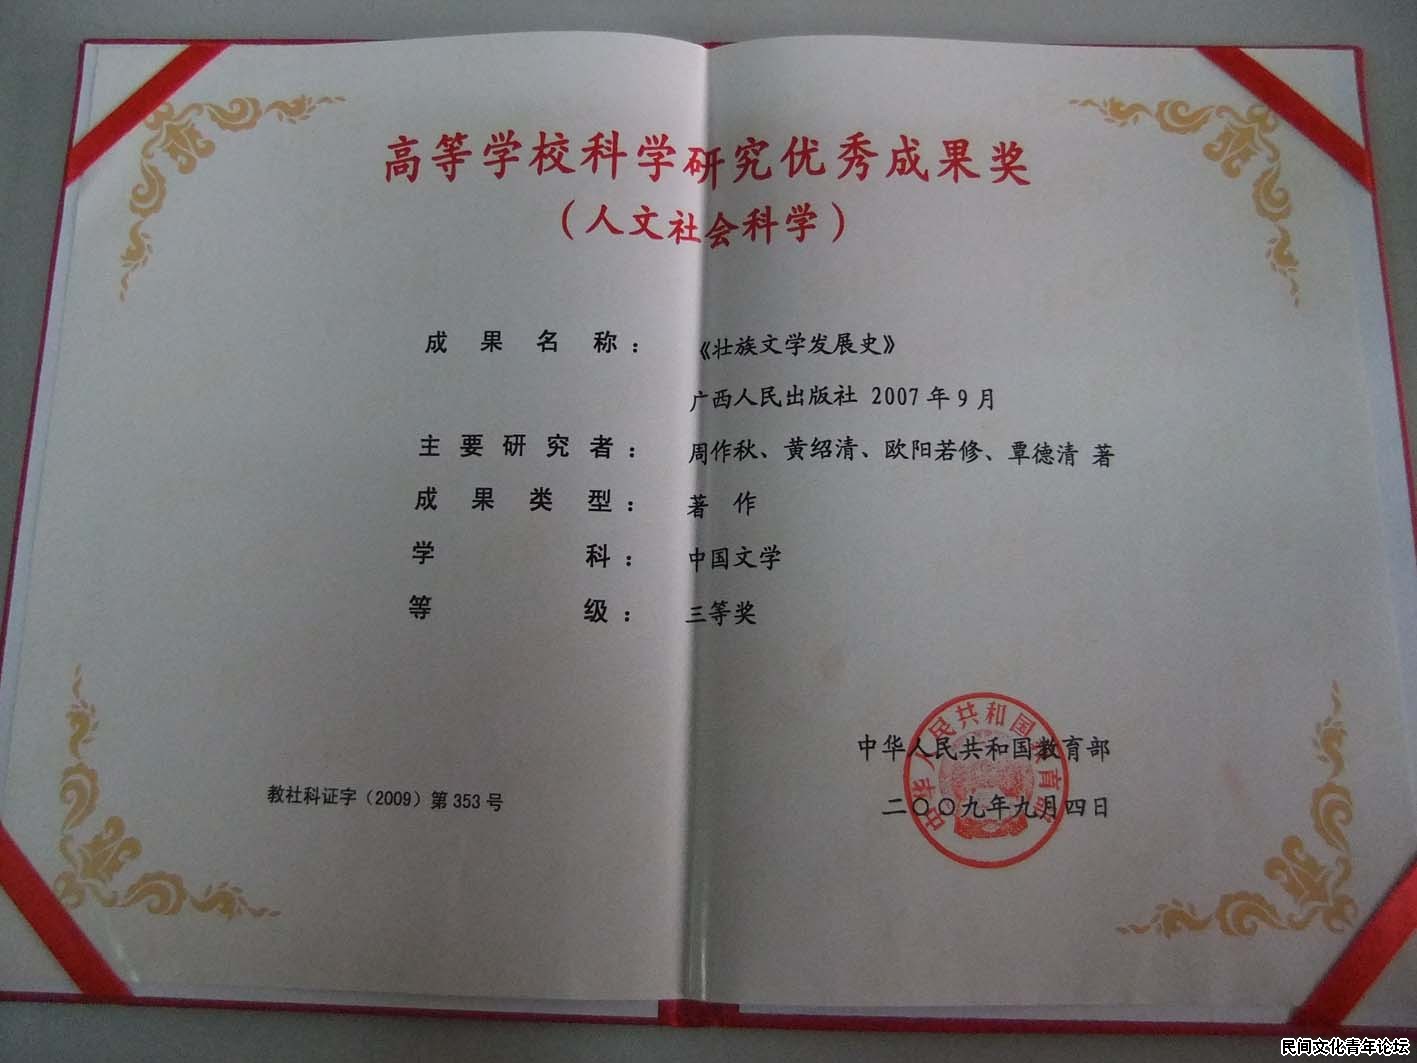 高等学校科学研究优秀成果奖
（人文社会科学）
成果名称：《壮族文学发展史》
广西人民出版社 2007年9月
主要研究者：周作秋、黄绍清、欧阳若修、覃德清 著
成果类型：著作
学科：中国文学
等级：三等奖
中华人民共和国教育部
二〇〇九年九月四日
中华人民共和国教育部
教社科证字（2009）第353号
民间文化青年论坛